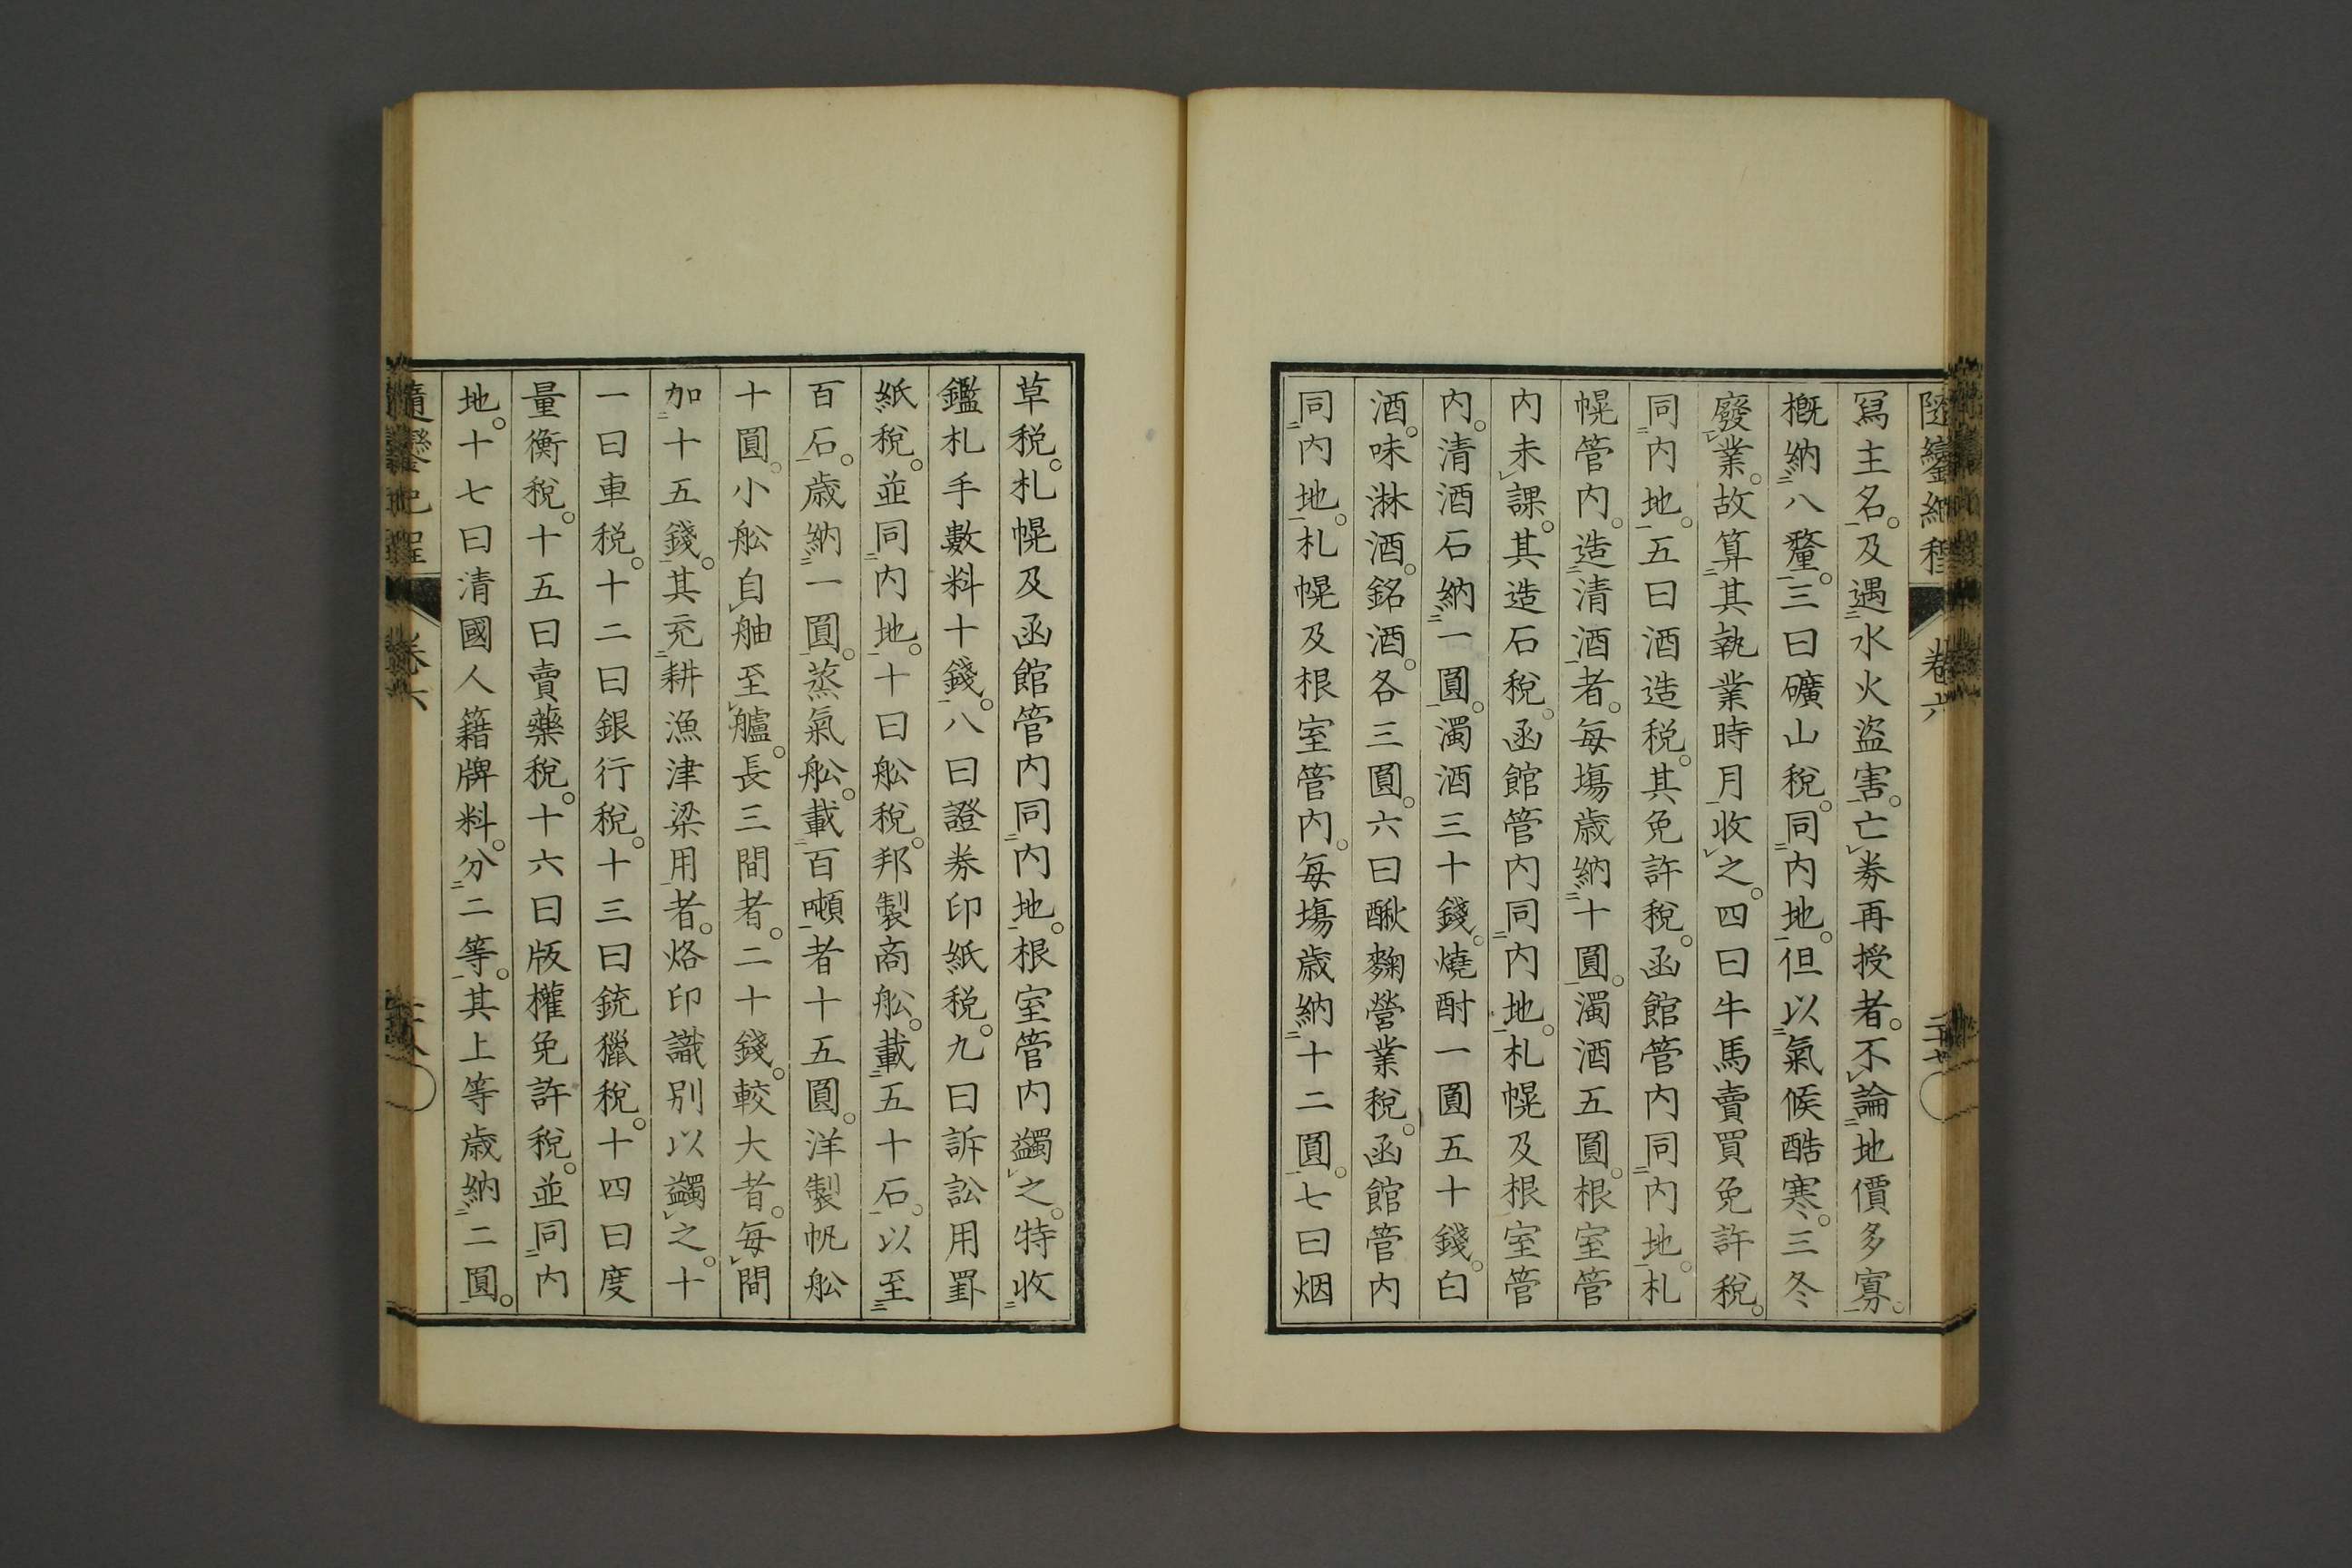 寫主名。及遇水火盜害。亡券再授者。不論地價多寡。
概納八釐。三曰礦山税。同內地。但以氣候酷寒。三冬
廢業。故算其執業時月收之。四曰牛馬賣買免許税。
同內地。五曰酒造税。其免許税。函館管內同內地。札
幌管內。造清酒者。每塲歳納十圓。濁酒五圓。根室管
內未課。其造石税。函館管內同內地。札幌及根室管
內。清酒石納一圓。濁酒三十錢。燒酎一圓五十錢。白
酒。味淋酒。銘酒。各三圓。六曰醱麴營業税。函館管內
同內地。札幌及根室管內。每塲歳納十二圓。七曰烟
草税。札幌及函館管內同內地。根室管內蠲之。特收
鑑札手數料十錢。八曰證券印紙税。九曰訴訟用罫
紙税。並同內地。十曰舩税。邦製商舩。載五十石。以至
百石。歳納一圓。蒸氣舩。載百噸者十五圓。洋製帆舩
十圓。小舩自舳至艫。長三間者。二十錢。較大者。每間
加十五錢。其充耕漁津梁用者。烙印識別以蠲之。十
一曰車税。十二曰銀行税。十三曰銃獵税。十四曰度
量衡税。十五曰賣藥税。十六曰版權免許税。並同內
地。十七曰清國人籍牌料。分二等。其上等歳納二圓。
隨鑾紀程
卷六